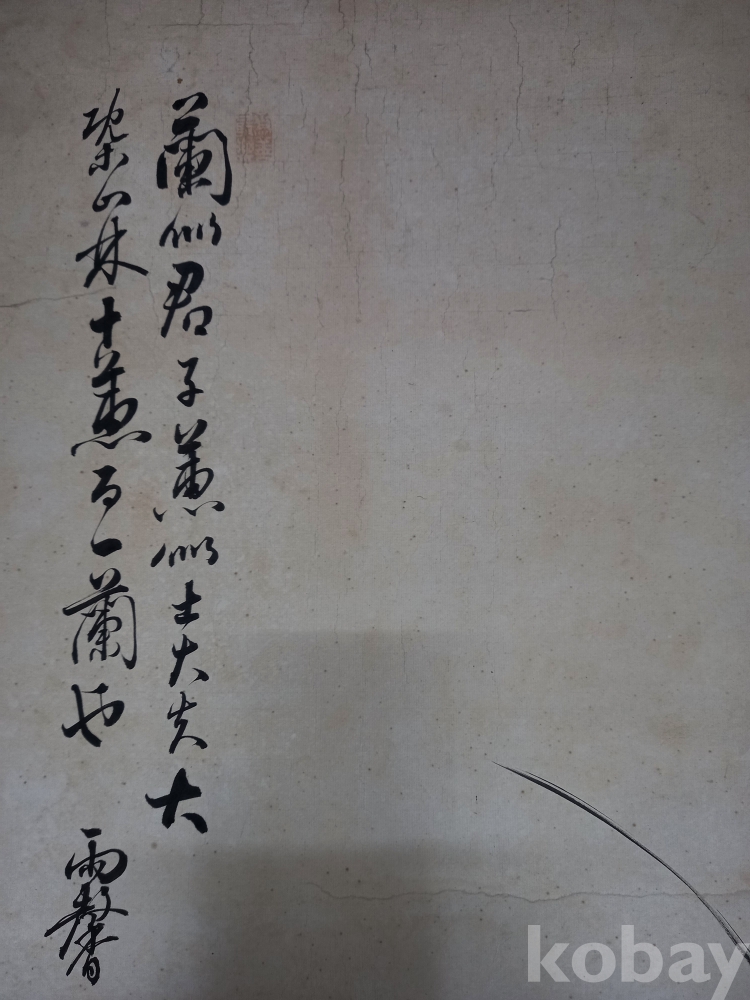 蘭似君子蕙似士大夫大
槩山林十蕙而一蘭也
雨馨
kobay